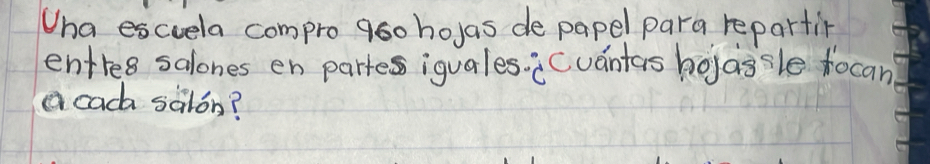 Una escuela compro 960 hojas de papel para repartir
entre 8 salones en partes iguales. ¿Cuántas hojas le tocan
a cada salón?